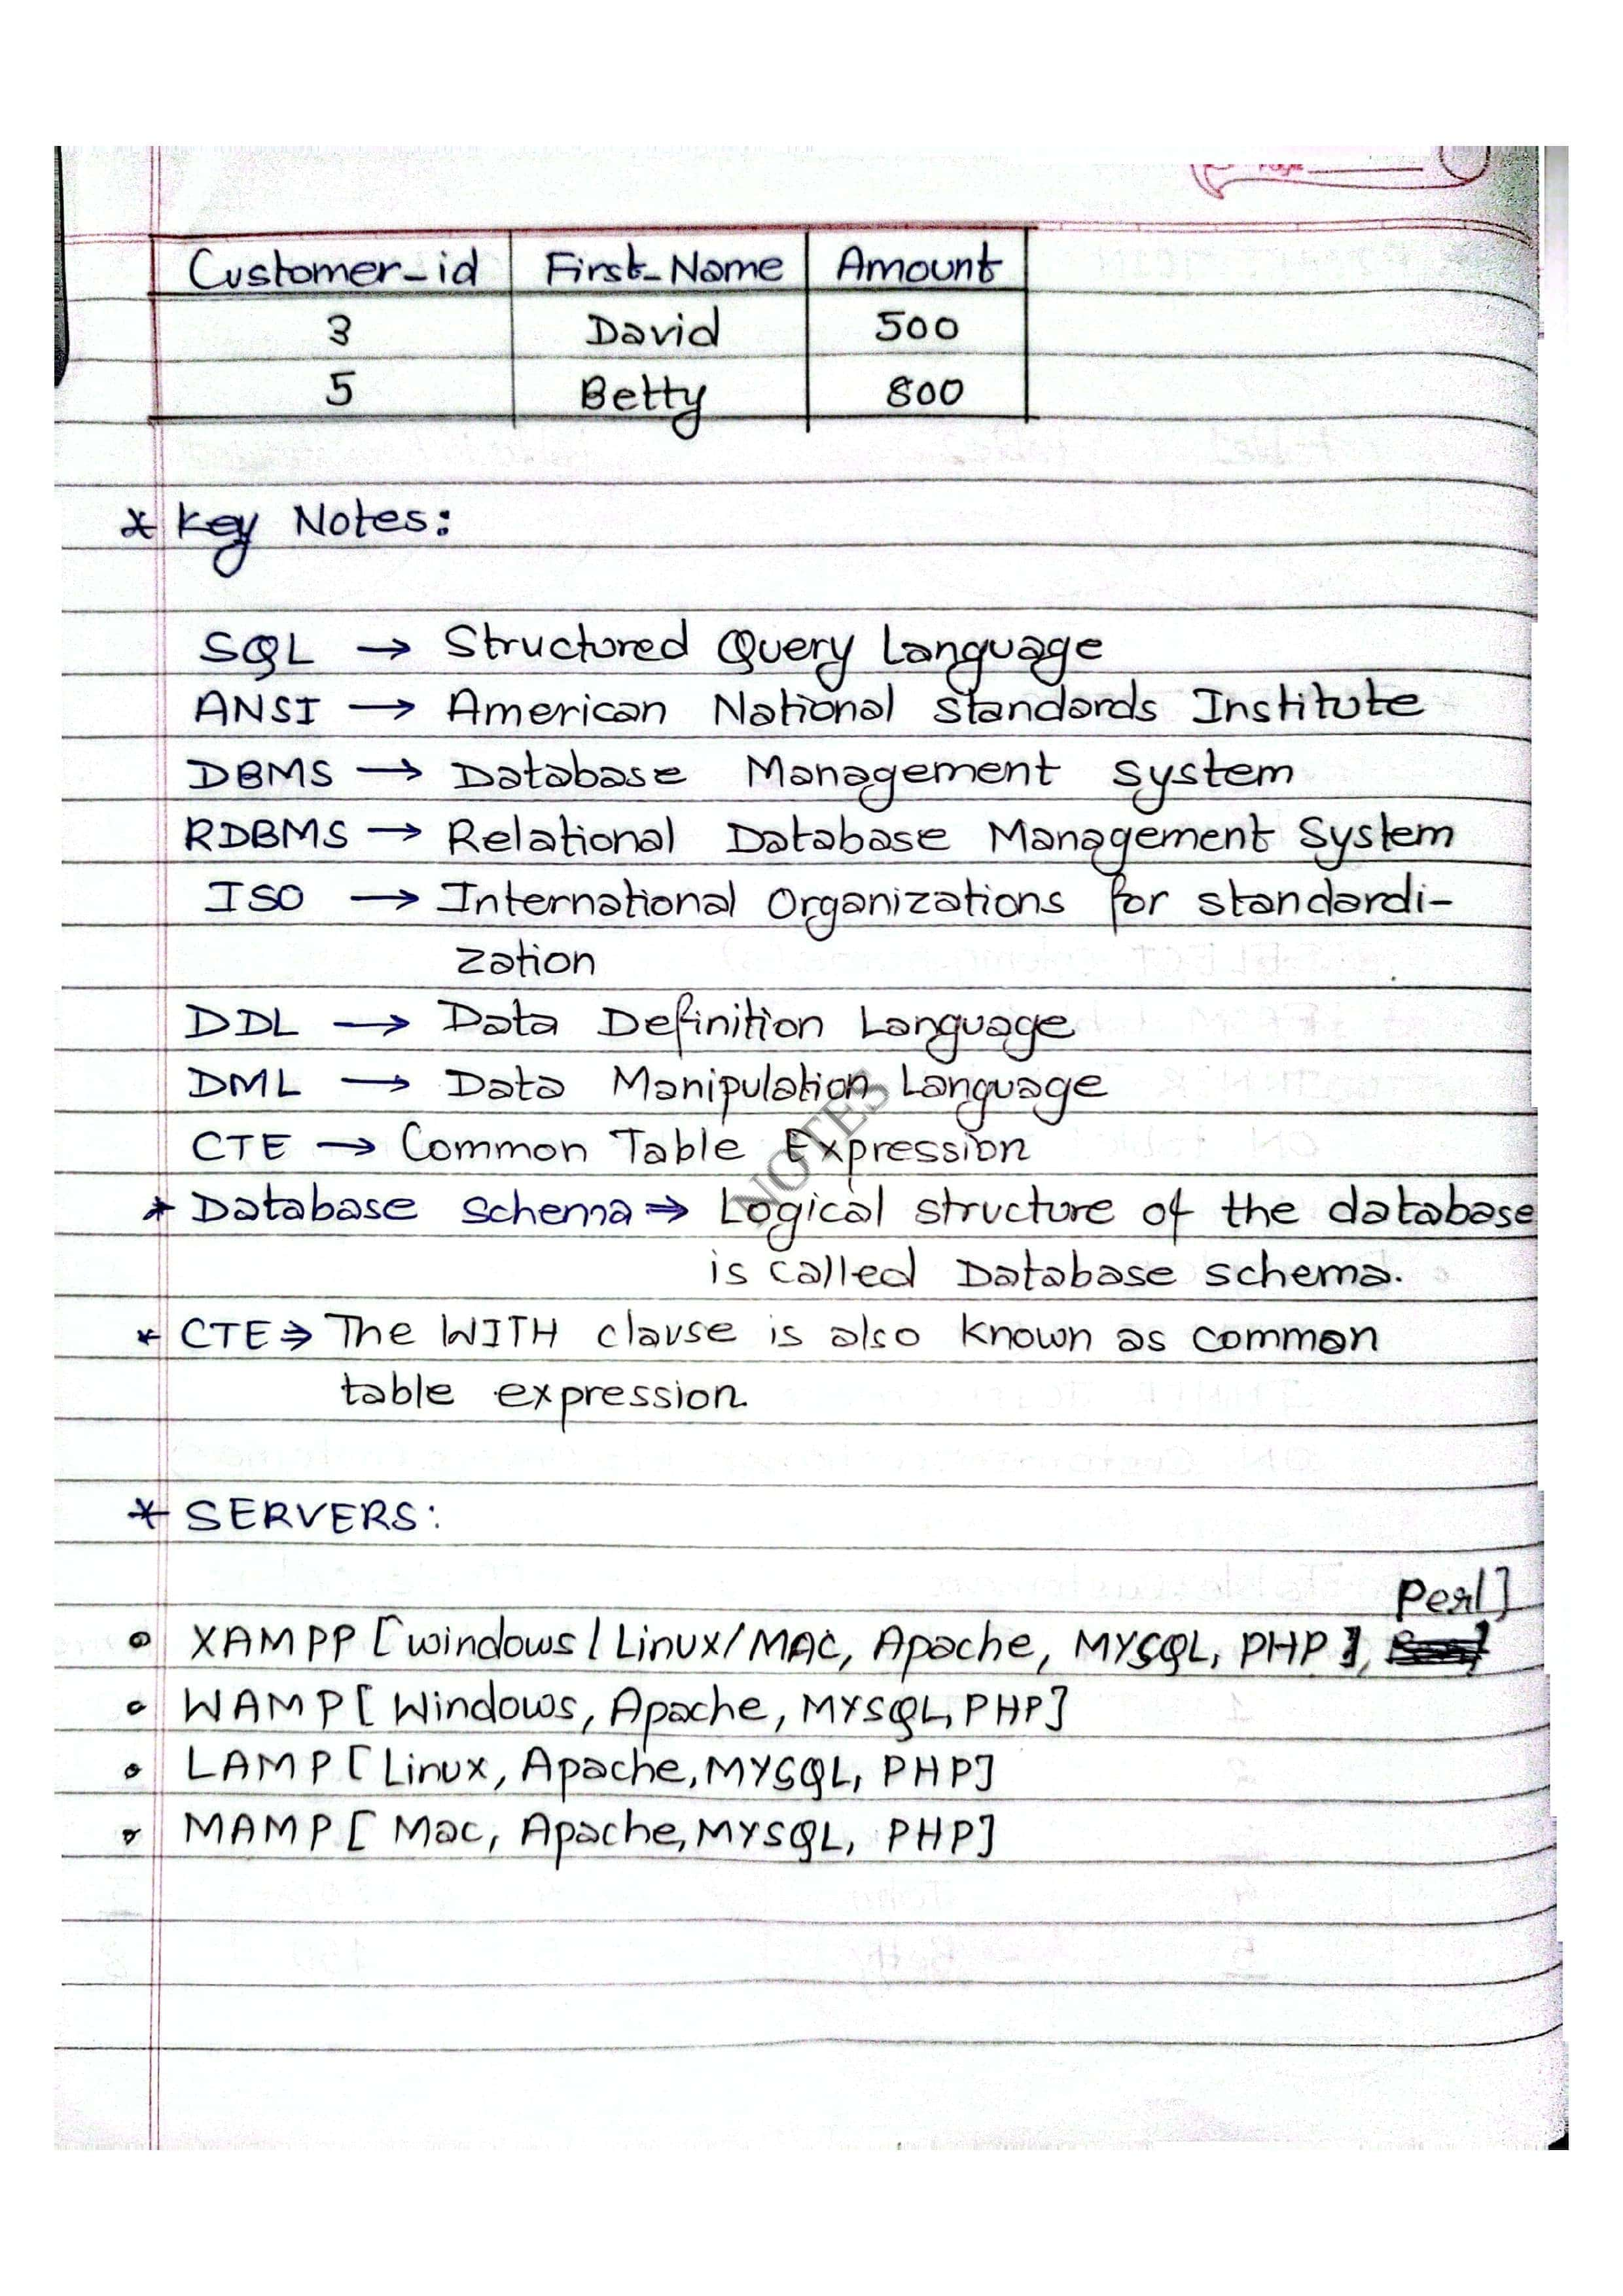 Page
Customer_id First_Name Amount
3 David 500
5 Betty 800
* Key Notes:
SQL → Structured Query Language
ANSI → American National Standards Institute
DBMS → Database Management System
RDBMS → Relational Database Management System
ISO → International Organizations for standardi-
zation
DDL → Data Definition Language
DML → Data Manipulation Language
CTE → Common Table Expression
NOTES
* Database schema ⇒ Logical structure of the database
is called Database schema.
* CTE ⇒ The WITH clause is also known as common
table expression.
* SERVERS:
Perl]
• XAMPP [windows/Linux/MAC, Apache, MYSQL, PHP],
• WAMP [Windows, Apache, MYSQL, PHP]
• LAMP [Linux, Apache, MYSQL, PHP]
• MAMP [Mac, Apache, MYSQL, PHP]